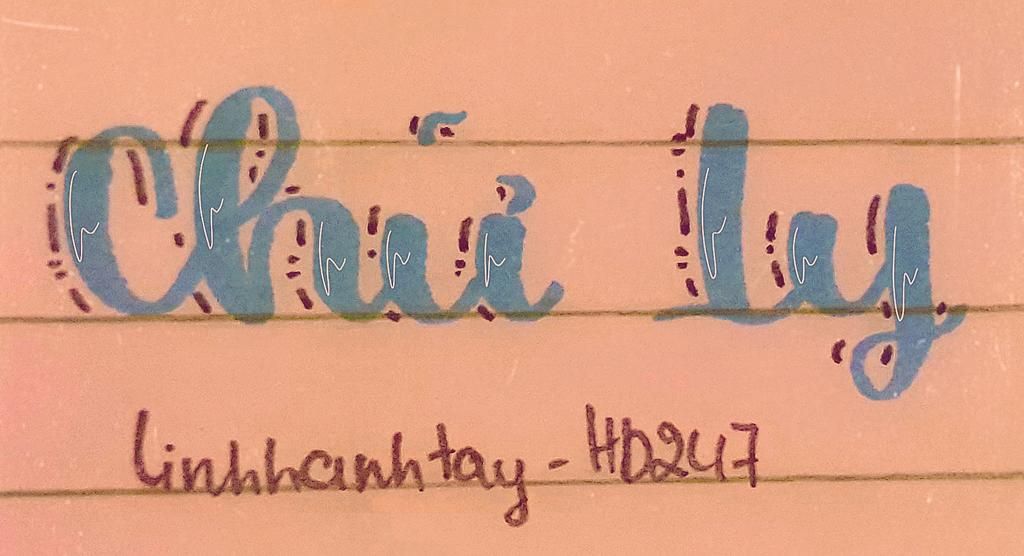 Chữ Ly
Linhhanhtay - HD247